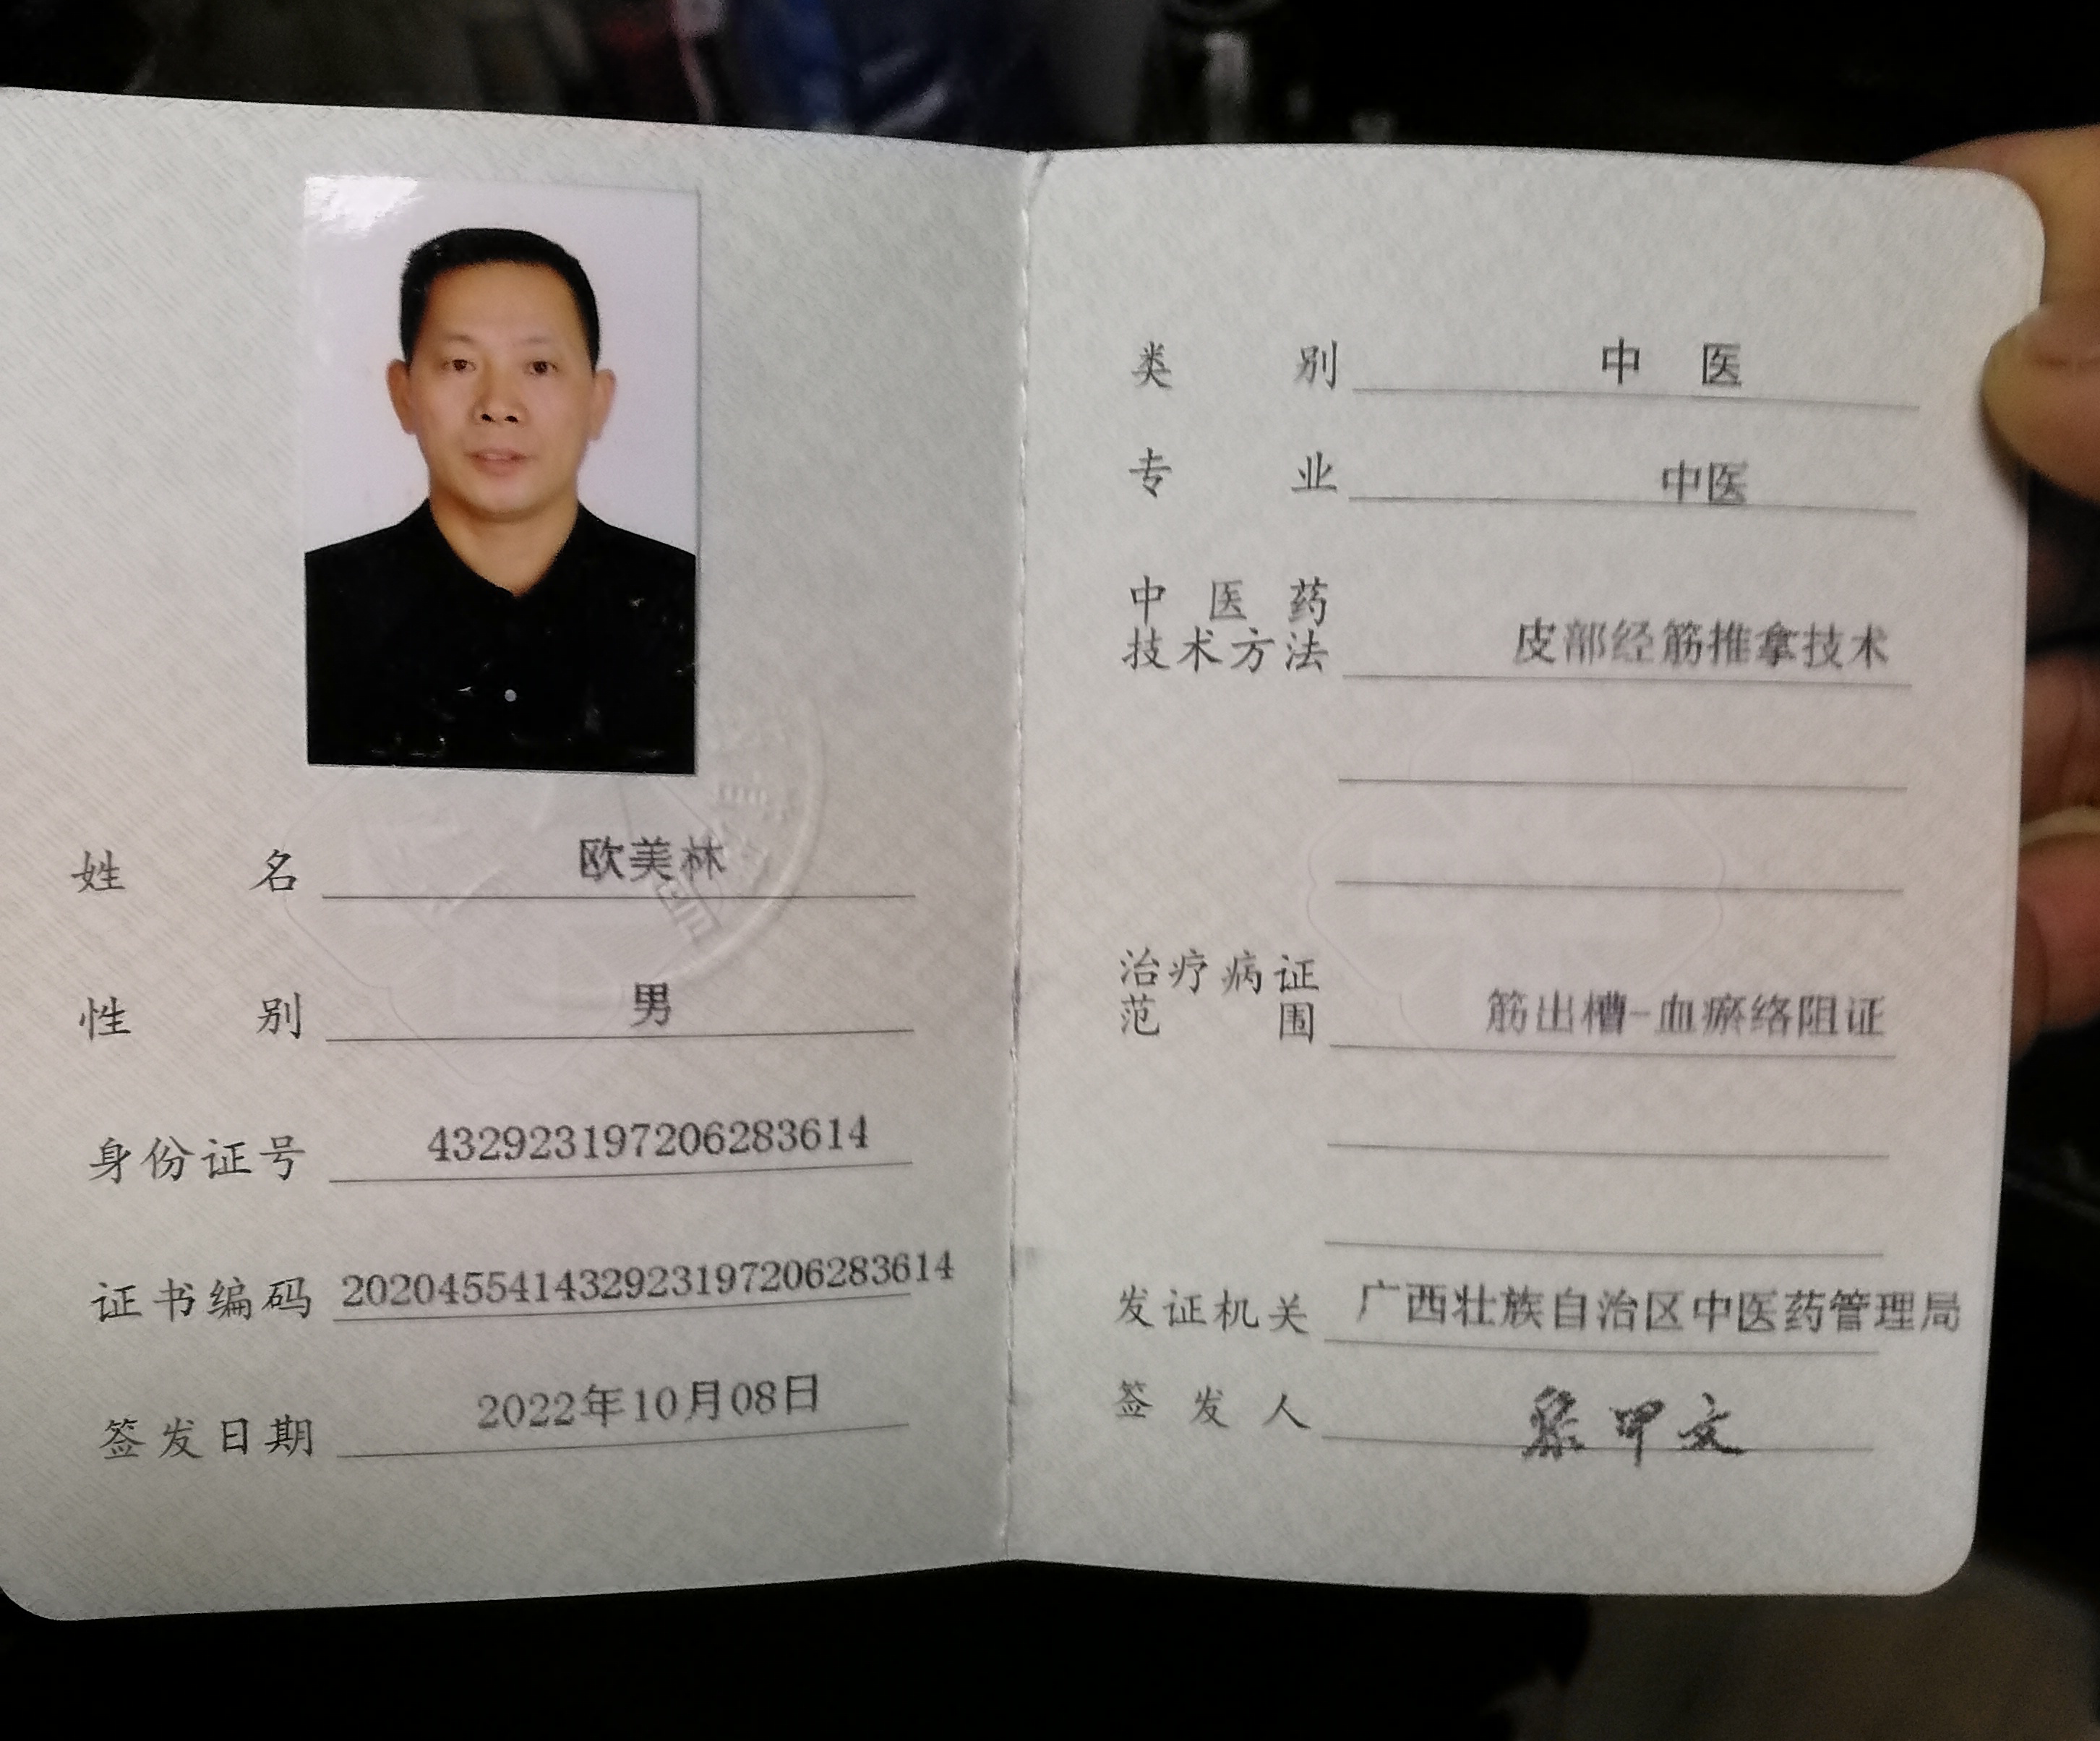 姓名 欧美林
性别 男
身份证号 432923197206283614
证书编码 202045541432923197206283614
签发日期 2022年10月08日
类别 中医
专业 中医
中医药
技术方法 皮部经筋推拿技术
治疗病证
范围 筋出槽-血瘀络阻证
发证机关 广西壮族自治区中医药管理局
签发人 黎甲文